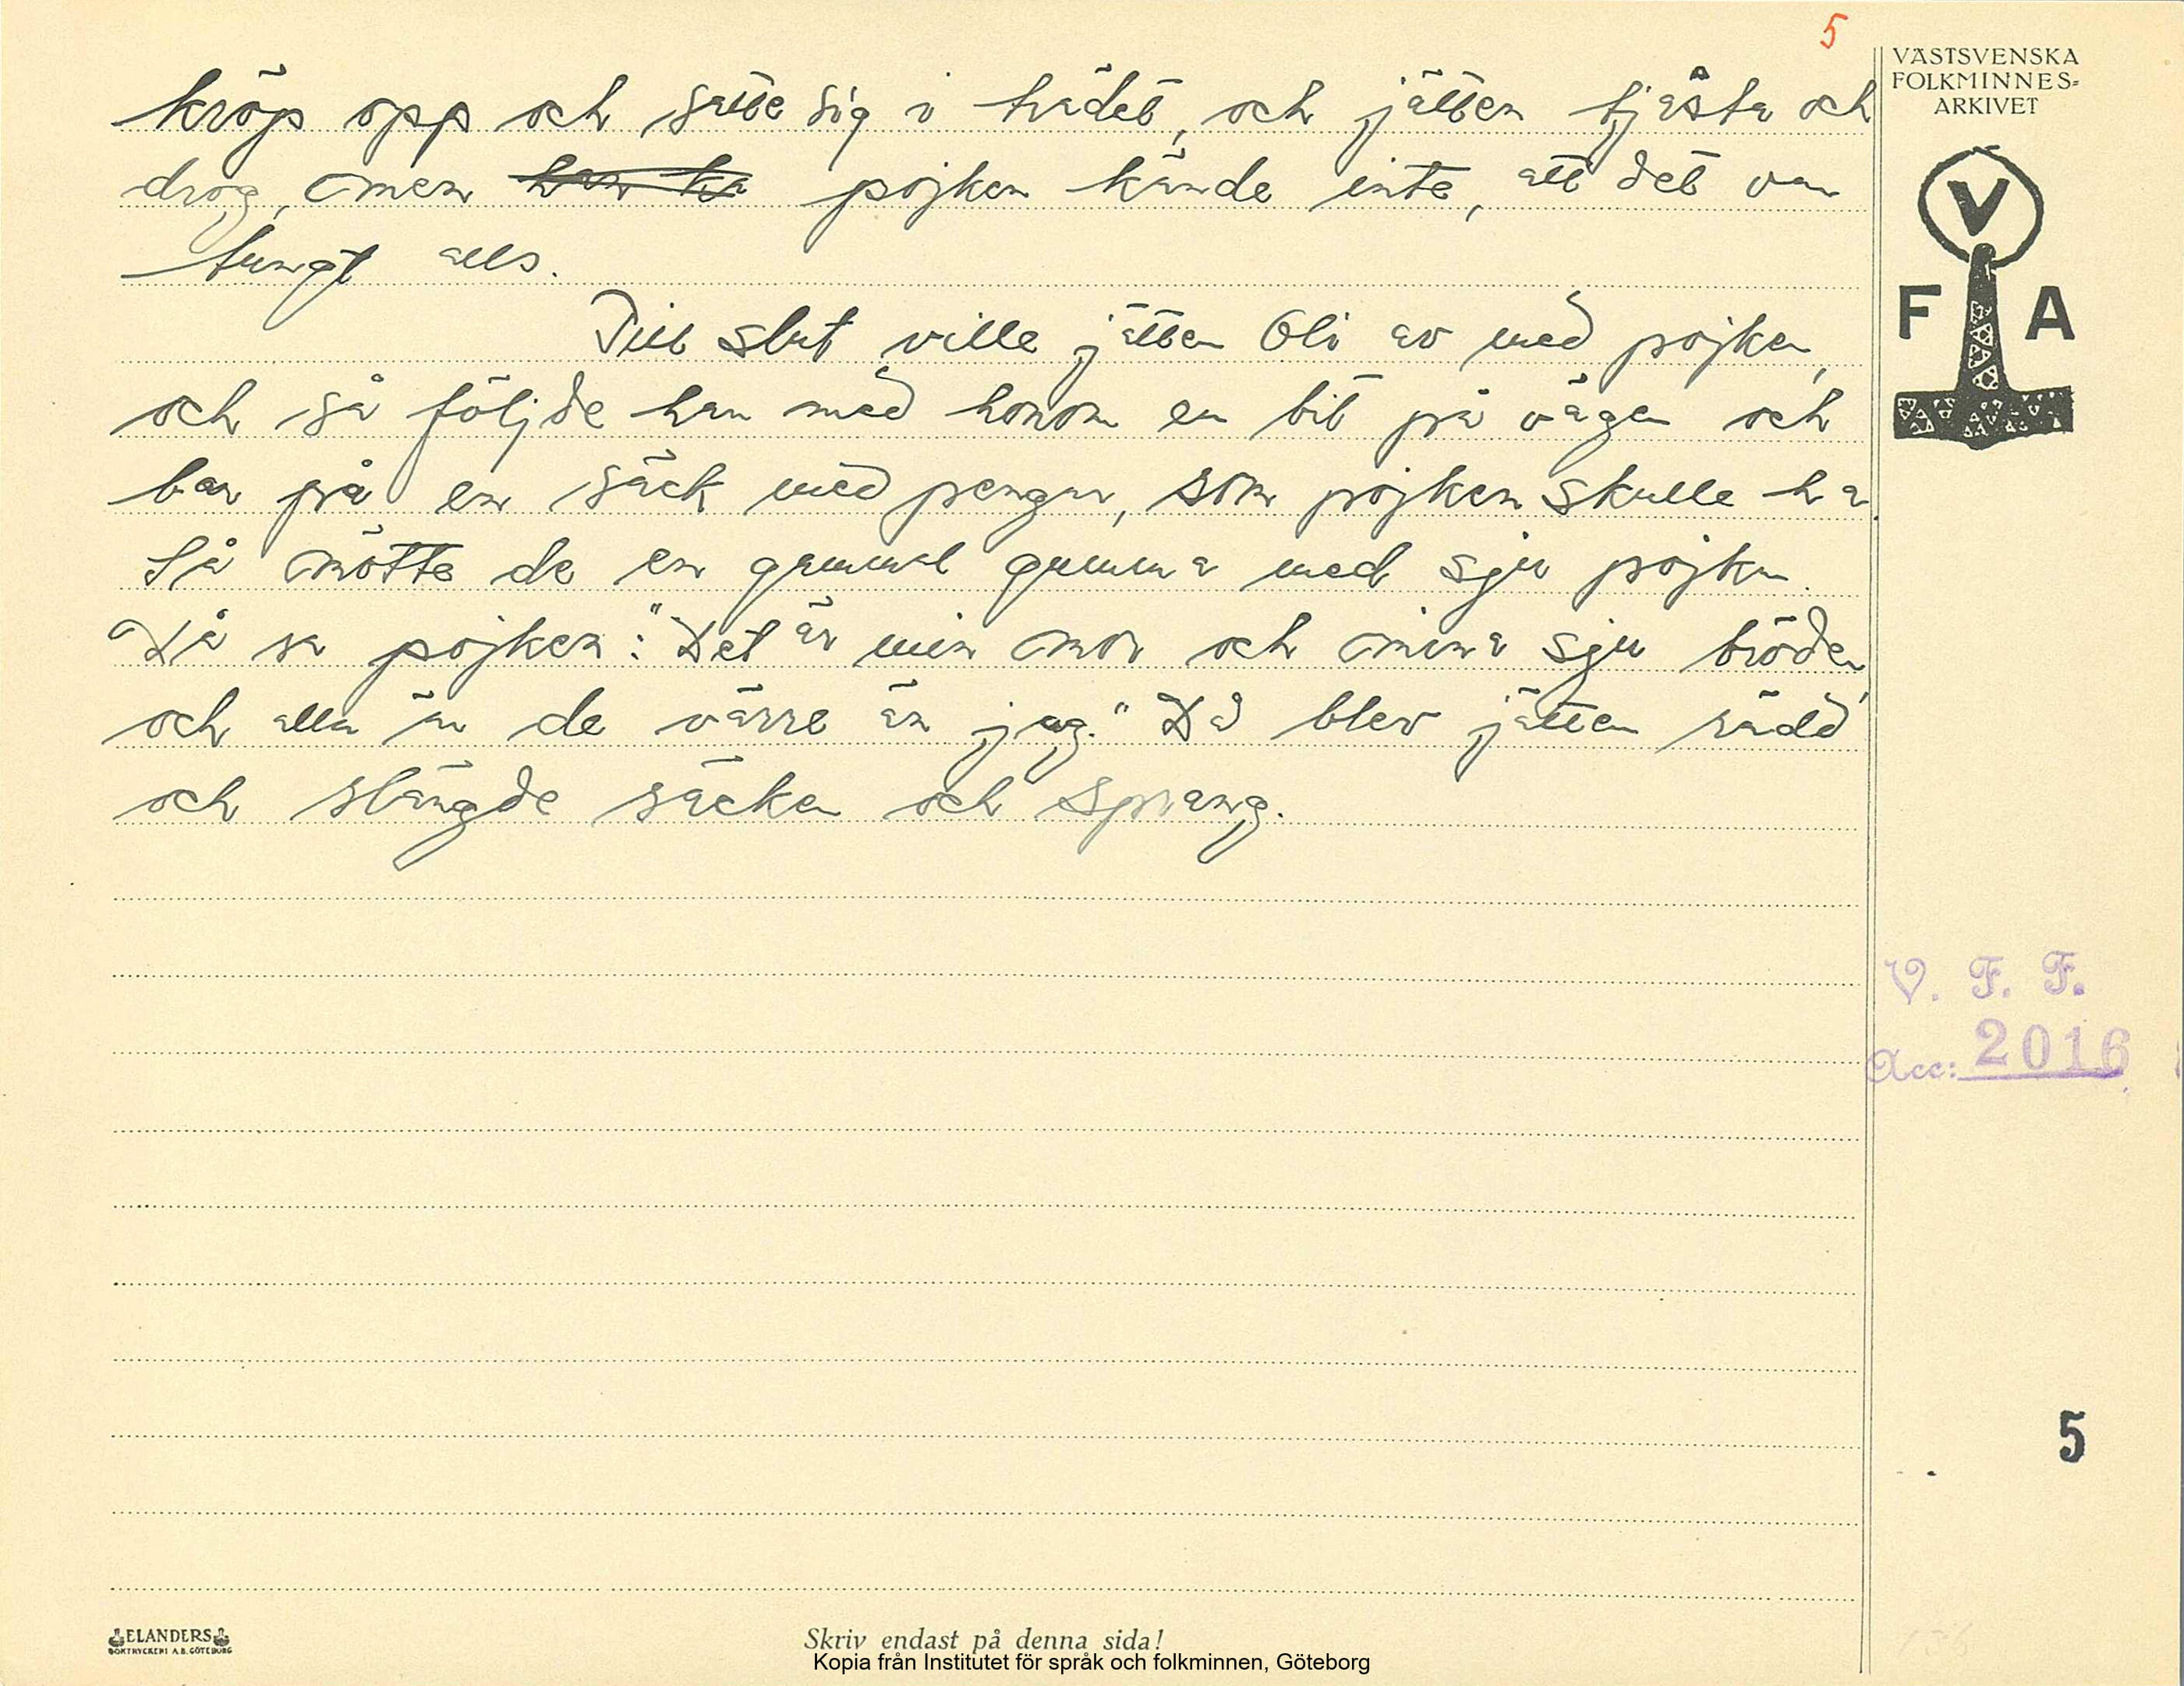 5
VÄSTSVENSKA
FOLKMINNES=
ARKIVET
V
F A
kröp opp och satte sig i trädet, och jätten tjåsta och
drog, men han ka pojken kände inte, att det var
tungt alls.
Till slut ville jätten bli av med pojken,
och så följde han med honom en bit på vägen och
bar på en säck med pengar, som pojken skulle ha.
Så mötte de en gammal gumma med sju pojkar.
Då sa pojken: "Det är min mor och mina sju bröder,
och alla är de värre än jag." Då blev jätten rädd
och slängde säcken och sprang.
V. F. F.
Acc: 2016
5
ELANDERS
BOKTRYCKERI A.B. GÖTEBORG
Skriv endast på denna sida!
Kopia från Institutet för språk och folkminnen, Göteborg